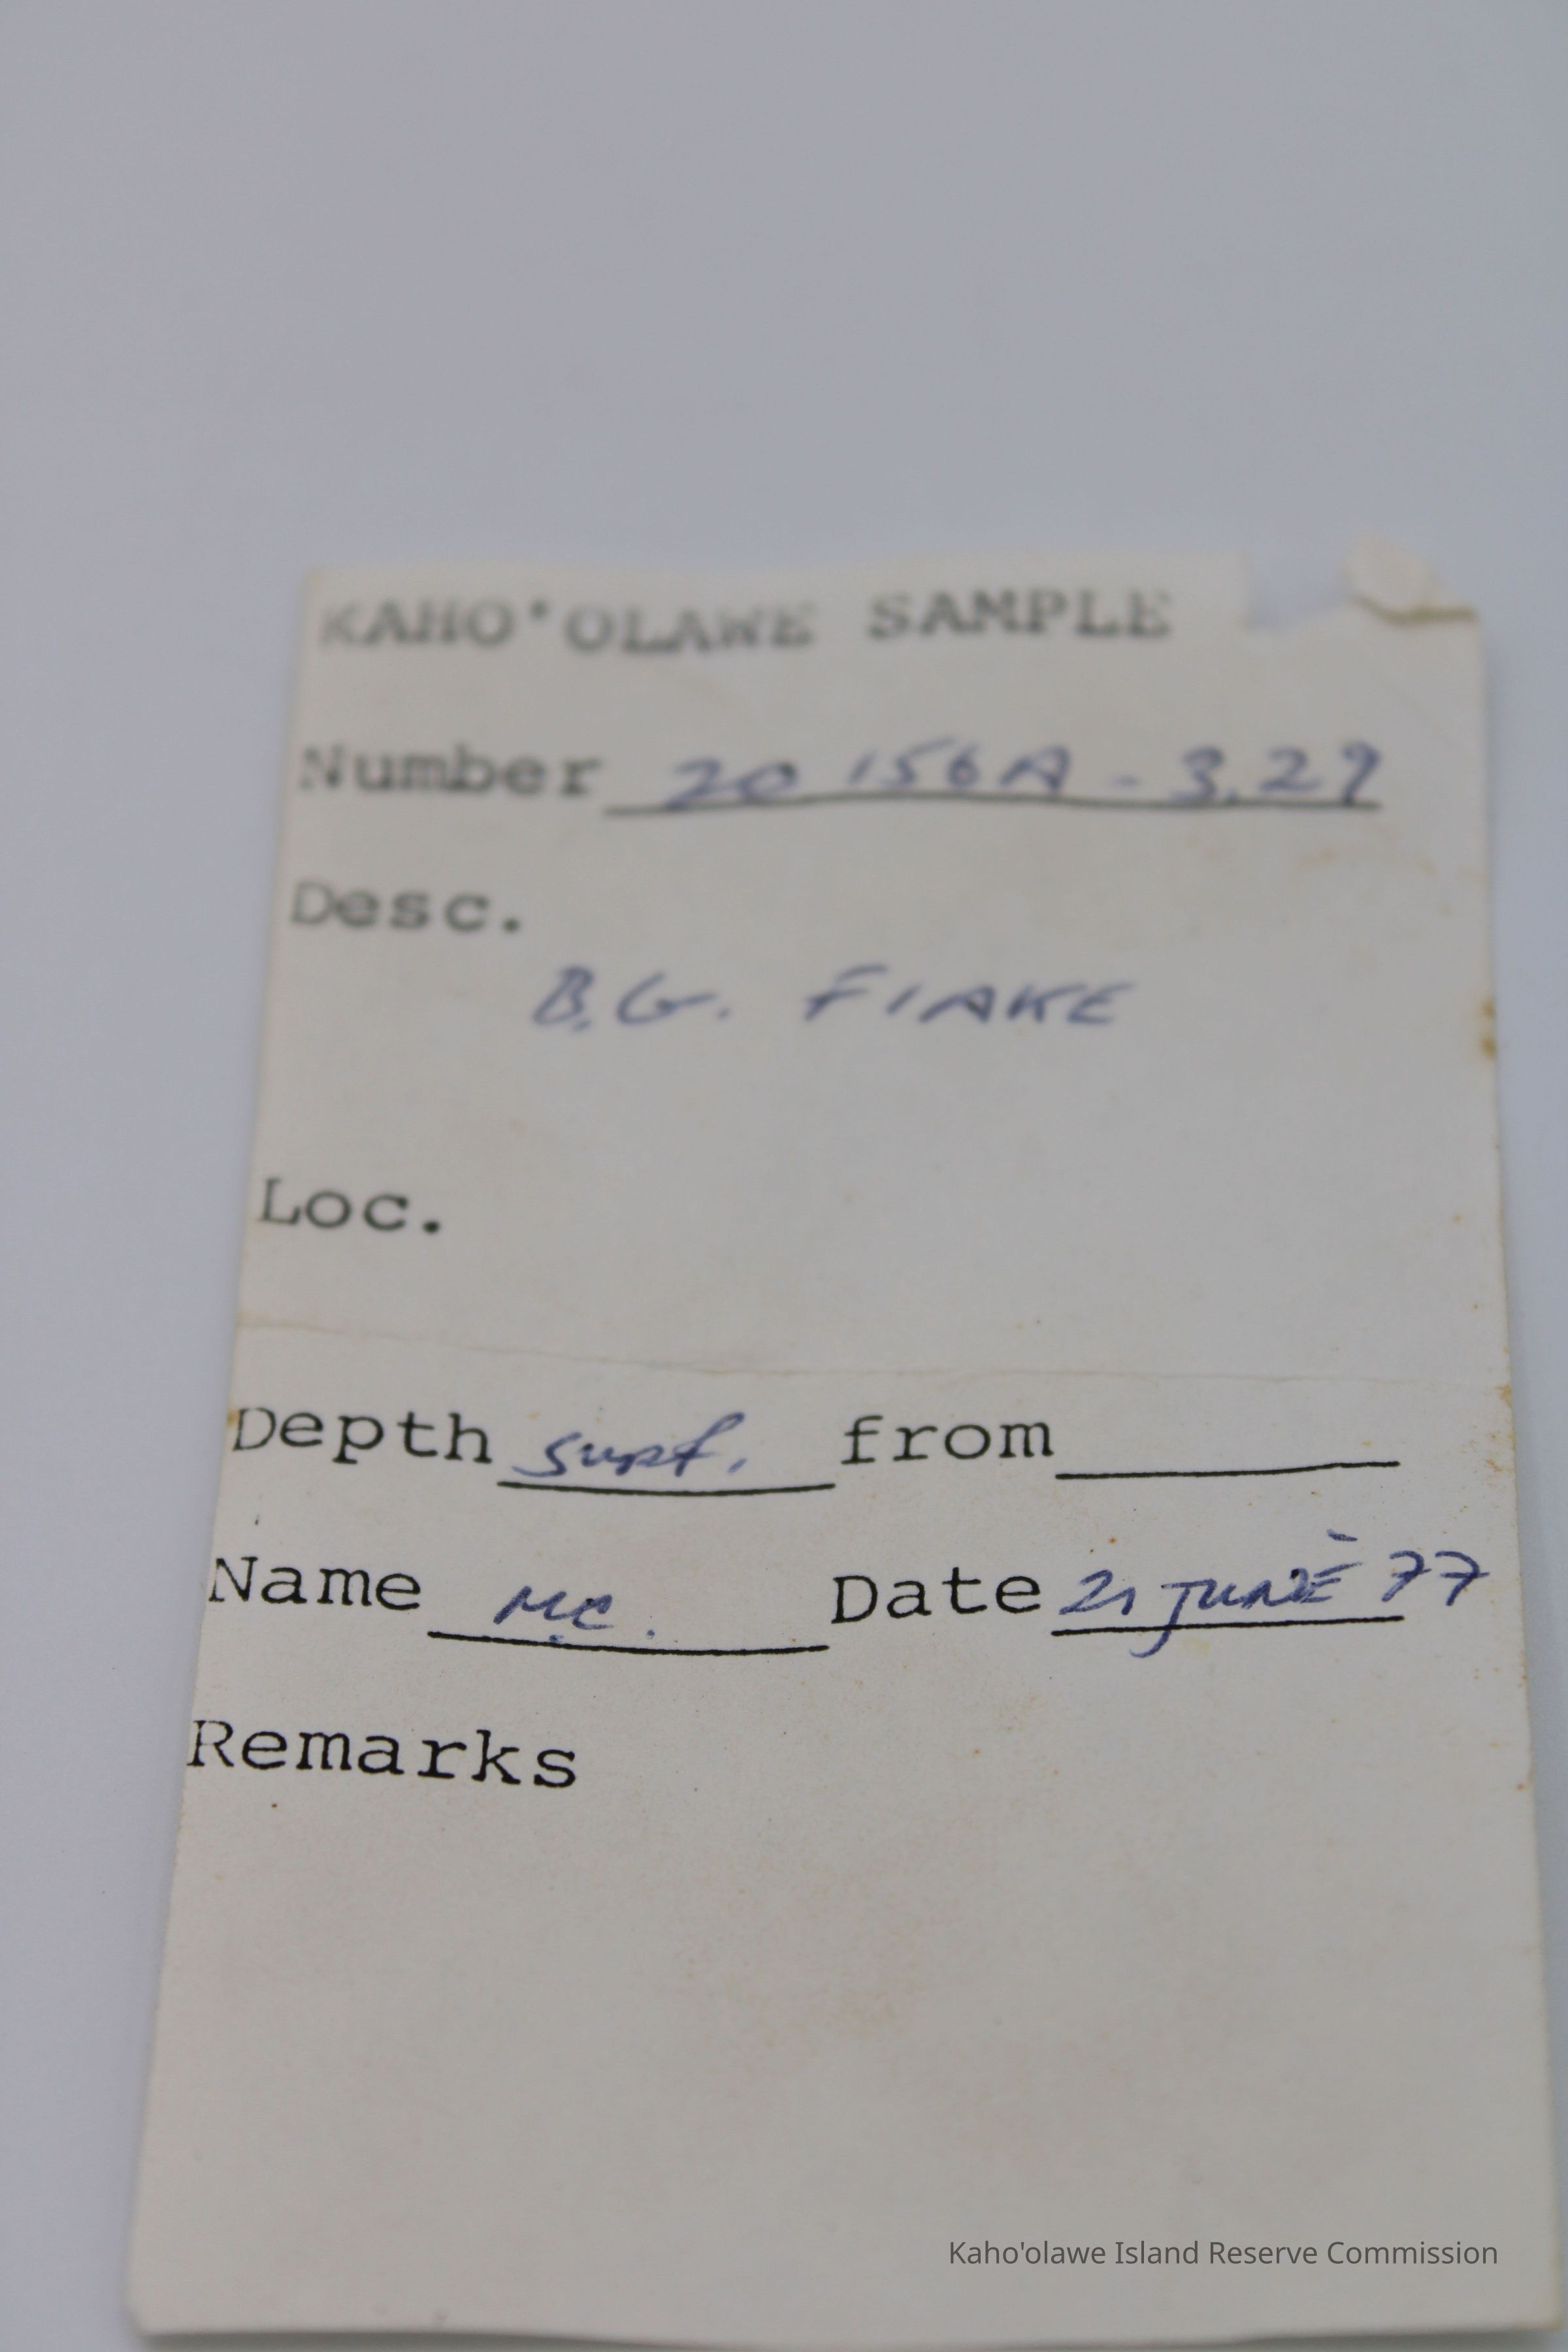 KAHO'OLAWE SAMPLE
Number 20 156A - 3.29
Desc.
B.G. FLAKE
Loc.
Depth surf. from
Name M.C. Date 21 JUNE 77
Remarks
Kaho'olawe Island Reserve Commission